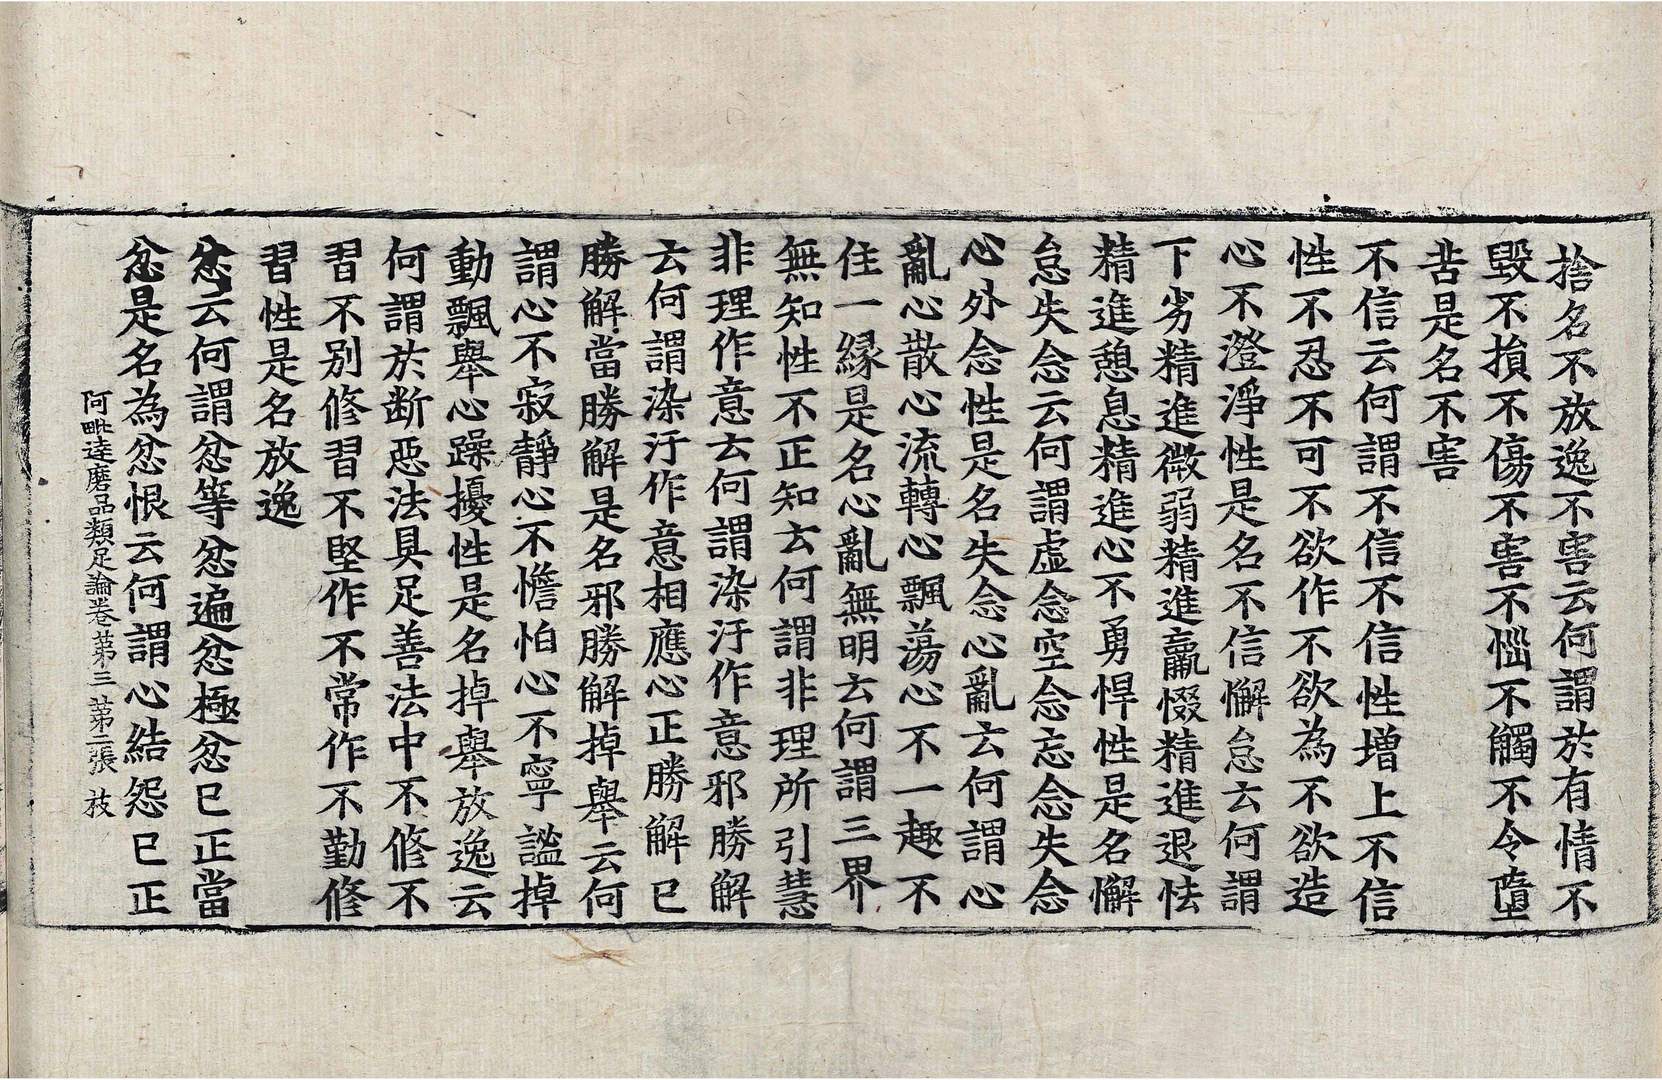 捨名不放逸不害云何謂於有情不
毀不損不傷不害不惱不觸不令墮
苦是名不害
不信云何謂不信不信性增上不信
性不忍不可不欲作不欲為不欲造
心不澄淨性是名不信懈怠云何謂
下劣精進微弱精進羸惙精進退怯
精進憩息精進心不勇悍性是名懈
怠失念云何謂虛念空念忘念失念
心外念性是名失念心亂云何謂心
亂心散心流轉心飄蕩心不一趣不
住一緣是名心亂無明云何謂三界
無知性不正知云何謂非理所引慧
非理作意云何謂染汙作意邪勝解
云何謂染汙作意相應心正勝解已
勝解當勝解是名邪勝解掉舉云何
謂心不寂靜心不憺怕心不寧謐掉
動飄舉心躁擾性是名掉舉放逸云
何謂於断惡法具足善法中不修不
習不別修習不堅作不常作不勤修
習性是名放逸
忿云何謂忿等忿遍忿極忿已正當
忿是名為忿恨云何謂心結怨已正
阿毗達磨品類足論卷苐三 苐二張 技